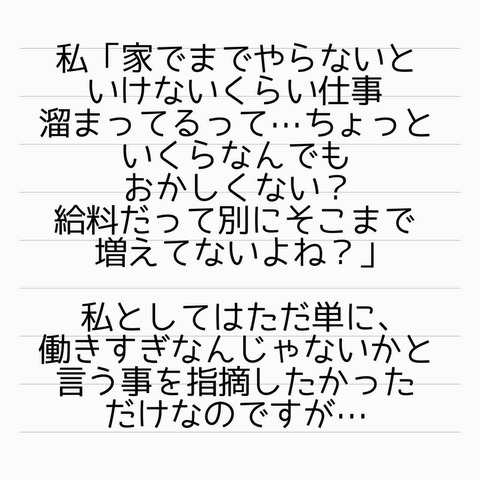 私「家でまでやらないと
いけないくらい仕事
溜まってるって…ちょっと
いくらなんでも
おかしくない？
給料だって別にそこまで
増えてないよね？」
私としてはただ単に、
働きすぎなんじゃないかと
言う事を指摘したかった
だけなのですが…